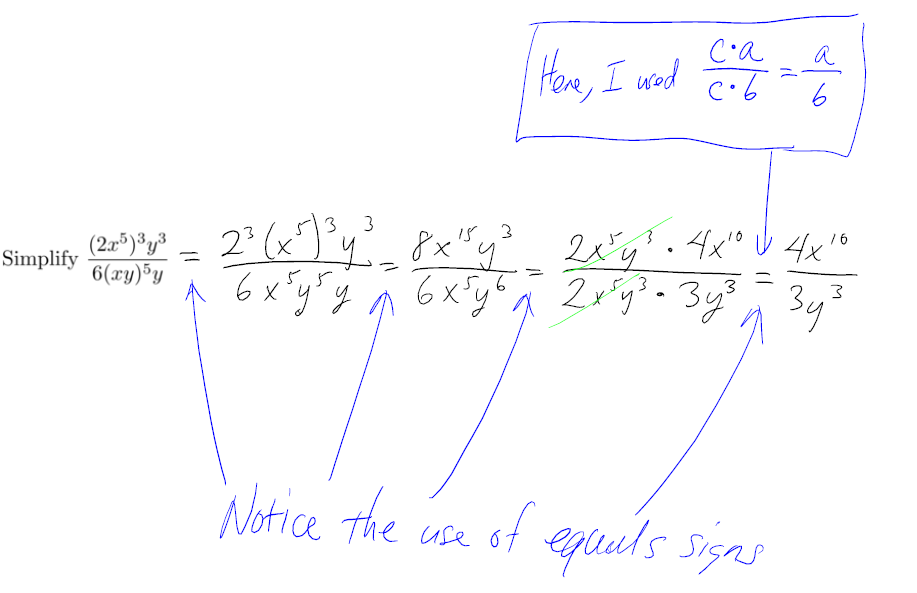 Here, I used \frac{c·a}{c·b} = \frac{a}{b}
Simplify \frac{(2x^5)^3y^3}{6(xy)^5y} = \frac{2^3(x^5)^3y^3}{6x^5y^5y} = \frac{8x^{15}y^3}{6x^5y^6} = \frac{2x^5y^3 · 4x^{10}}{2x^5y^3 · 3y^3} = \frac{4x^{10}}{3y^3}
Notice the use of equals signs